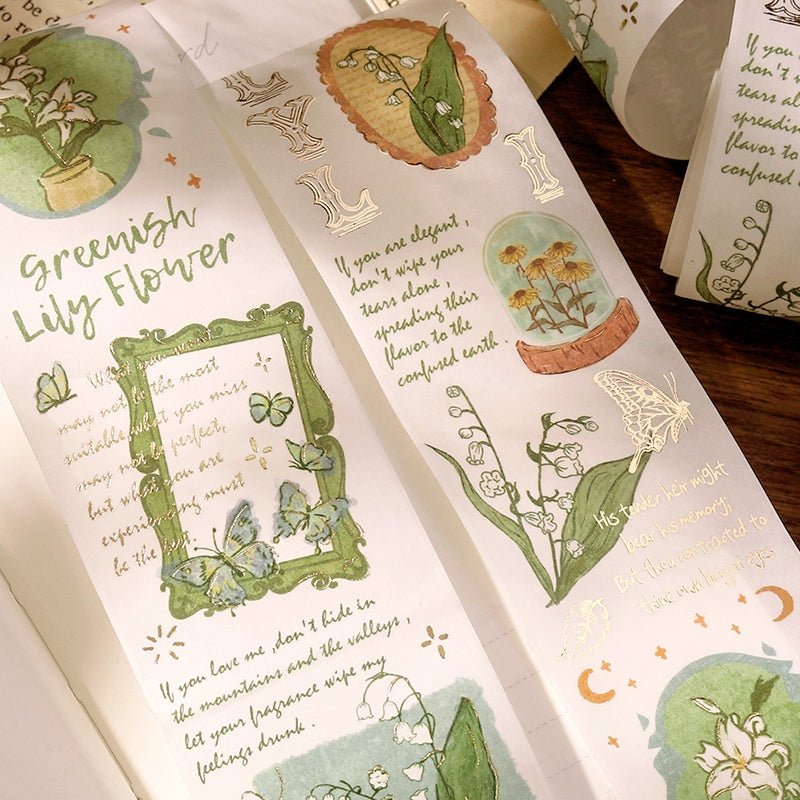 Greenish
Lily Flower
What you want
may not be the most
suitable, what you miss
may not be perfect,
but what you are
experiencing must
be the
If you love me ,don't hide in
the mountains and the valleys ,
let your fragrance wipe my
feelings drunk .
LILY
If you are elegant ,
don't wipe your
tears alone ,
spreading their
flavor to the
confused earth .
His tender heir might
bear his memory;
But thou contracted to
thine own bright eyes
If you
don't
tears al
spreadin
flavor to
confused